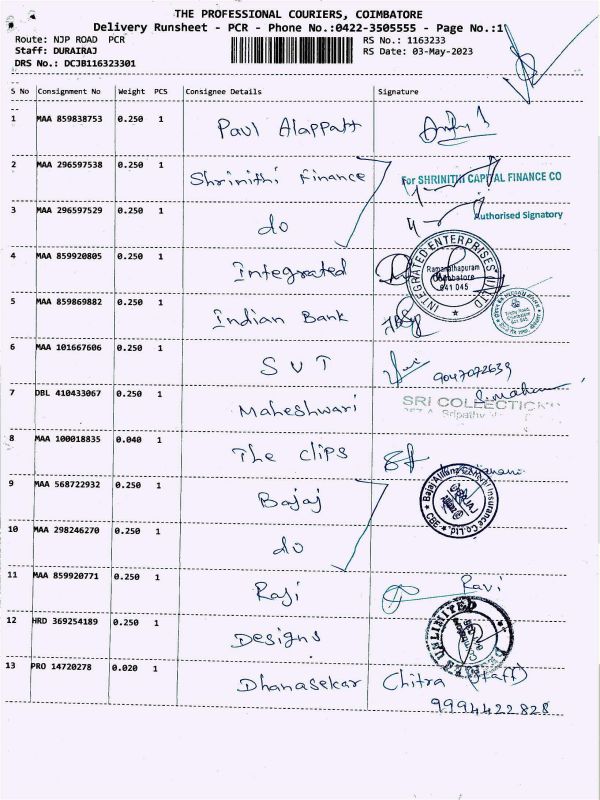 THE PROFESSIONAL COURIERS, COIMBATORE
Delivery Runsheet - PCR - Phone No.:0422-3505555 - Page No.:1
Route: NJP ROAD PCR
RS No.: 1163233
Staff: DURAIRAJ
RS Date: 03-May-2023
DRS No.: DCJB116323301
S No Consignment No Weight PCS Consignee Details Signature
1 MAA 859838753 0.250 1 Paul Alappatt
2 MAA 296597538 0.250 1 Shrinithi Finance For SHRINITHI CAPITAL FINANCE CO
3 MAA 296597529 0.250 1 do Authorised Signatory
4 MAA 859920805 0.250 1 Integrated
INTEGRATED ENTERPRISES (I) LTD
Ramanathapuram
Coimbatore
641 045
5 MAA 859869882 0.250 1 Indian Bank
6 MAA 101667606 0.250 1 SVT 9047072639
7 DBL 410433067 0.250 1 Maheshwari
SRI COLLECTION
8 MAA 100018835 0.040 1 The clips
9 MAA 568722932 0.250 1 Bajaj
Bajaj Allianz General Insurance Co. Ltd.
CBE
10 MAA 298246270 0.250 1 do
11 MAA 859920771 0.250 1 Raji Ravi
12 HRD 369254189 0.250 1 Designs
UNLIMITED
13 PRO 14720278 0.020 1 Dhanasekar Chitra (Staff)
9994422828